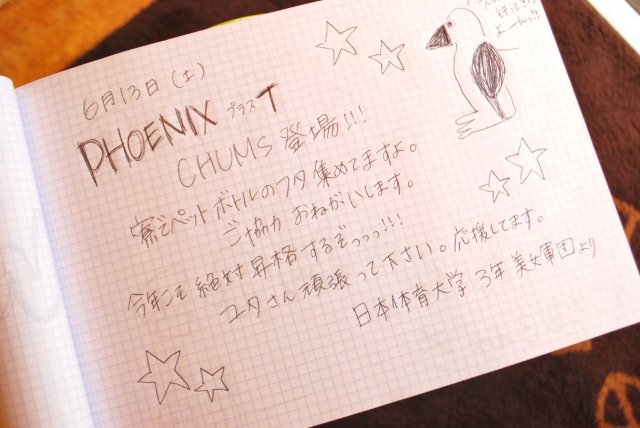 行ってきた
よーんっ!!
6月13日(土)
PHOENIX プラスT
CHUMS登場!!!
寮でペットボトルのフタ集めてますよ。
ご協力おねがいします。
今年こそ絶対昇格するぞっっっ!!!
ユタさん頑張って下さい。応援してます。
日本体育大学3年美女軍団より